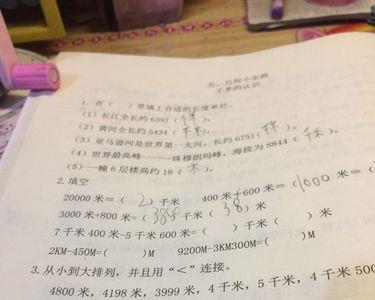 五、几何小实践
千米的认识
1. 在（ ）里填上合适的长度单位。
（1）长江全长约 6397（千米）。
（2）黄河全长约 5434（千米）。
（3）亚马逊河是世界第一大河，长约 6751（千米）。
（4）世界最高峰——珠穆朗玛峰，海拔为 8844（千米）。
（5）一幢 6 层楼高约 18（米）。
2. 填空
20000 米＝（ 2 ）千米 400 米＋600 米＝（1000 米＝（
3000 米+800 米＝（3800）千米（38）米
7 千米 400 米-5 千米 600 米＝（ ）千米（ ）米
2KM-450M=( )M 9200M-3KM300M=( )M
3. 从小到大排列，并且用“<”连接。
4800 米，4198 米，3999 米，4 千米，5 千米，4 千米 500